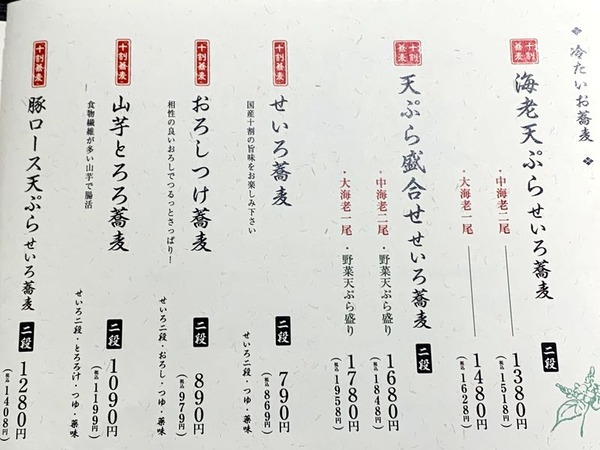 冷たいお蕎麦
十割蕎麦
海老天ぷらせいろ蕎麦
二段
・中海老二尾
1380円
(税込1518円)
・大海老一尾
1480円
(税込1628円)
十割蕎麦
天ぷら盛合せせいろ蕎麦
二段
・中海老二尾・野菜天ぷら盛り
1680円
(税込1848円)
・大海老一尾・野菜天ぷら盛り
1780円
(税込1958円)
十割蕎麦
せいろ蕎麦
国産十割の旨味をお楽しみ下さい
二段
790円
(税込869円)
せいろ二段・つゆ・薬味
十割蕎麦
おろしつけ蕎麦
相性の良いおろしでつるっとさっぱり!
二段
890円
(税込979円)
せいろ二段・おろし・つゆ・薬味
十割蕎麦
山芋とろろ蕎麦
食物繊維が多い山芋で腸活
二段
1090円
(税込1199円)
せいろ二段・とろろ汁・つゆ・薬味
十割蕎麦
豚ロース天ぷらせいろ蕎麦
二段
1280円
(税込1408円)